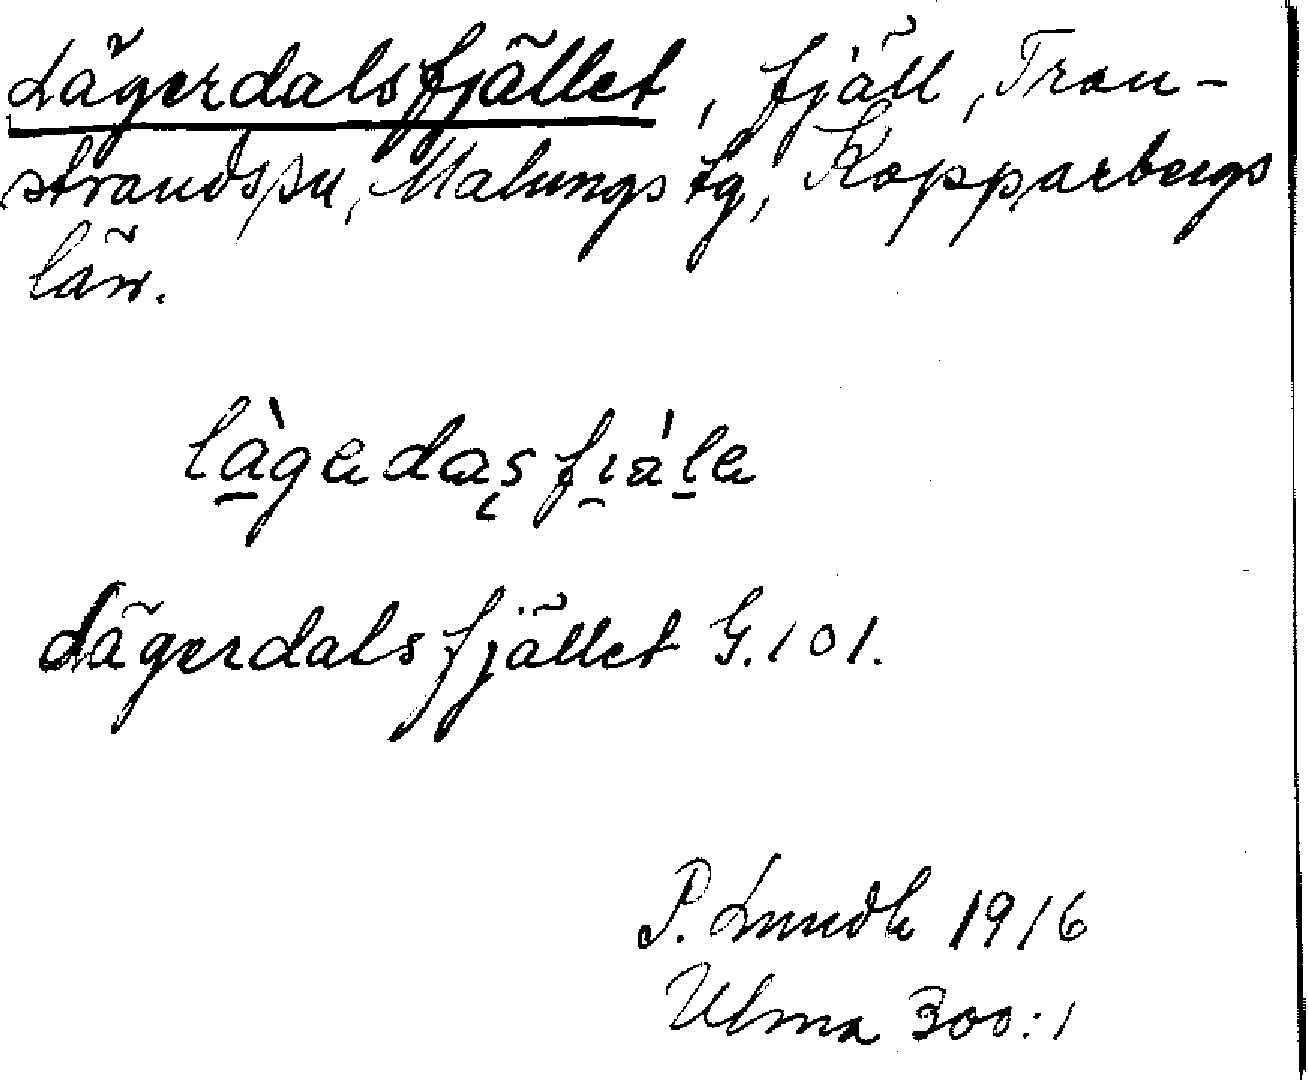 Lägerdalsfjället, fjäll, Tran-
strands sn, Malungs tg, Kopparbergs
län.
làgadasfiále
Lägerdalsfjället G.101.
P. Lundh 1916
Ulma 300:1